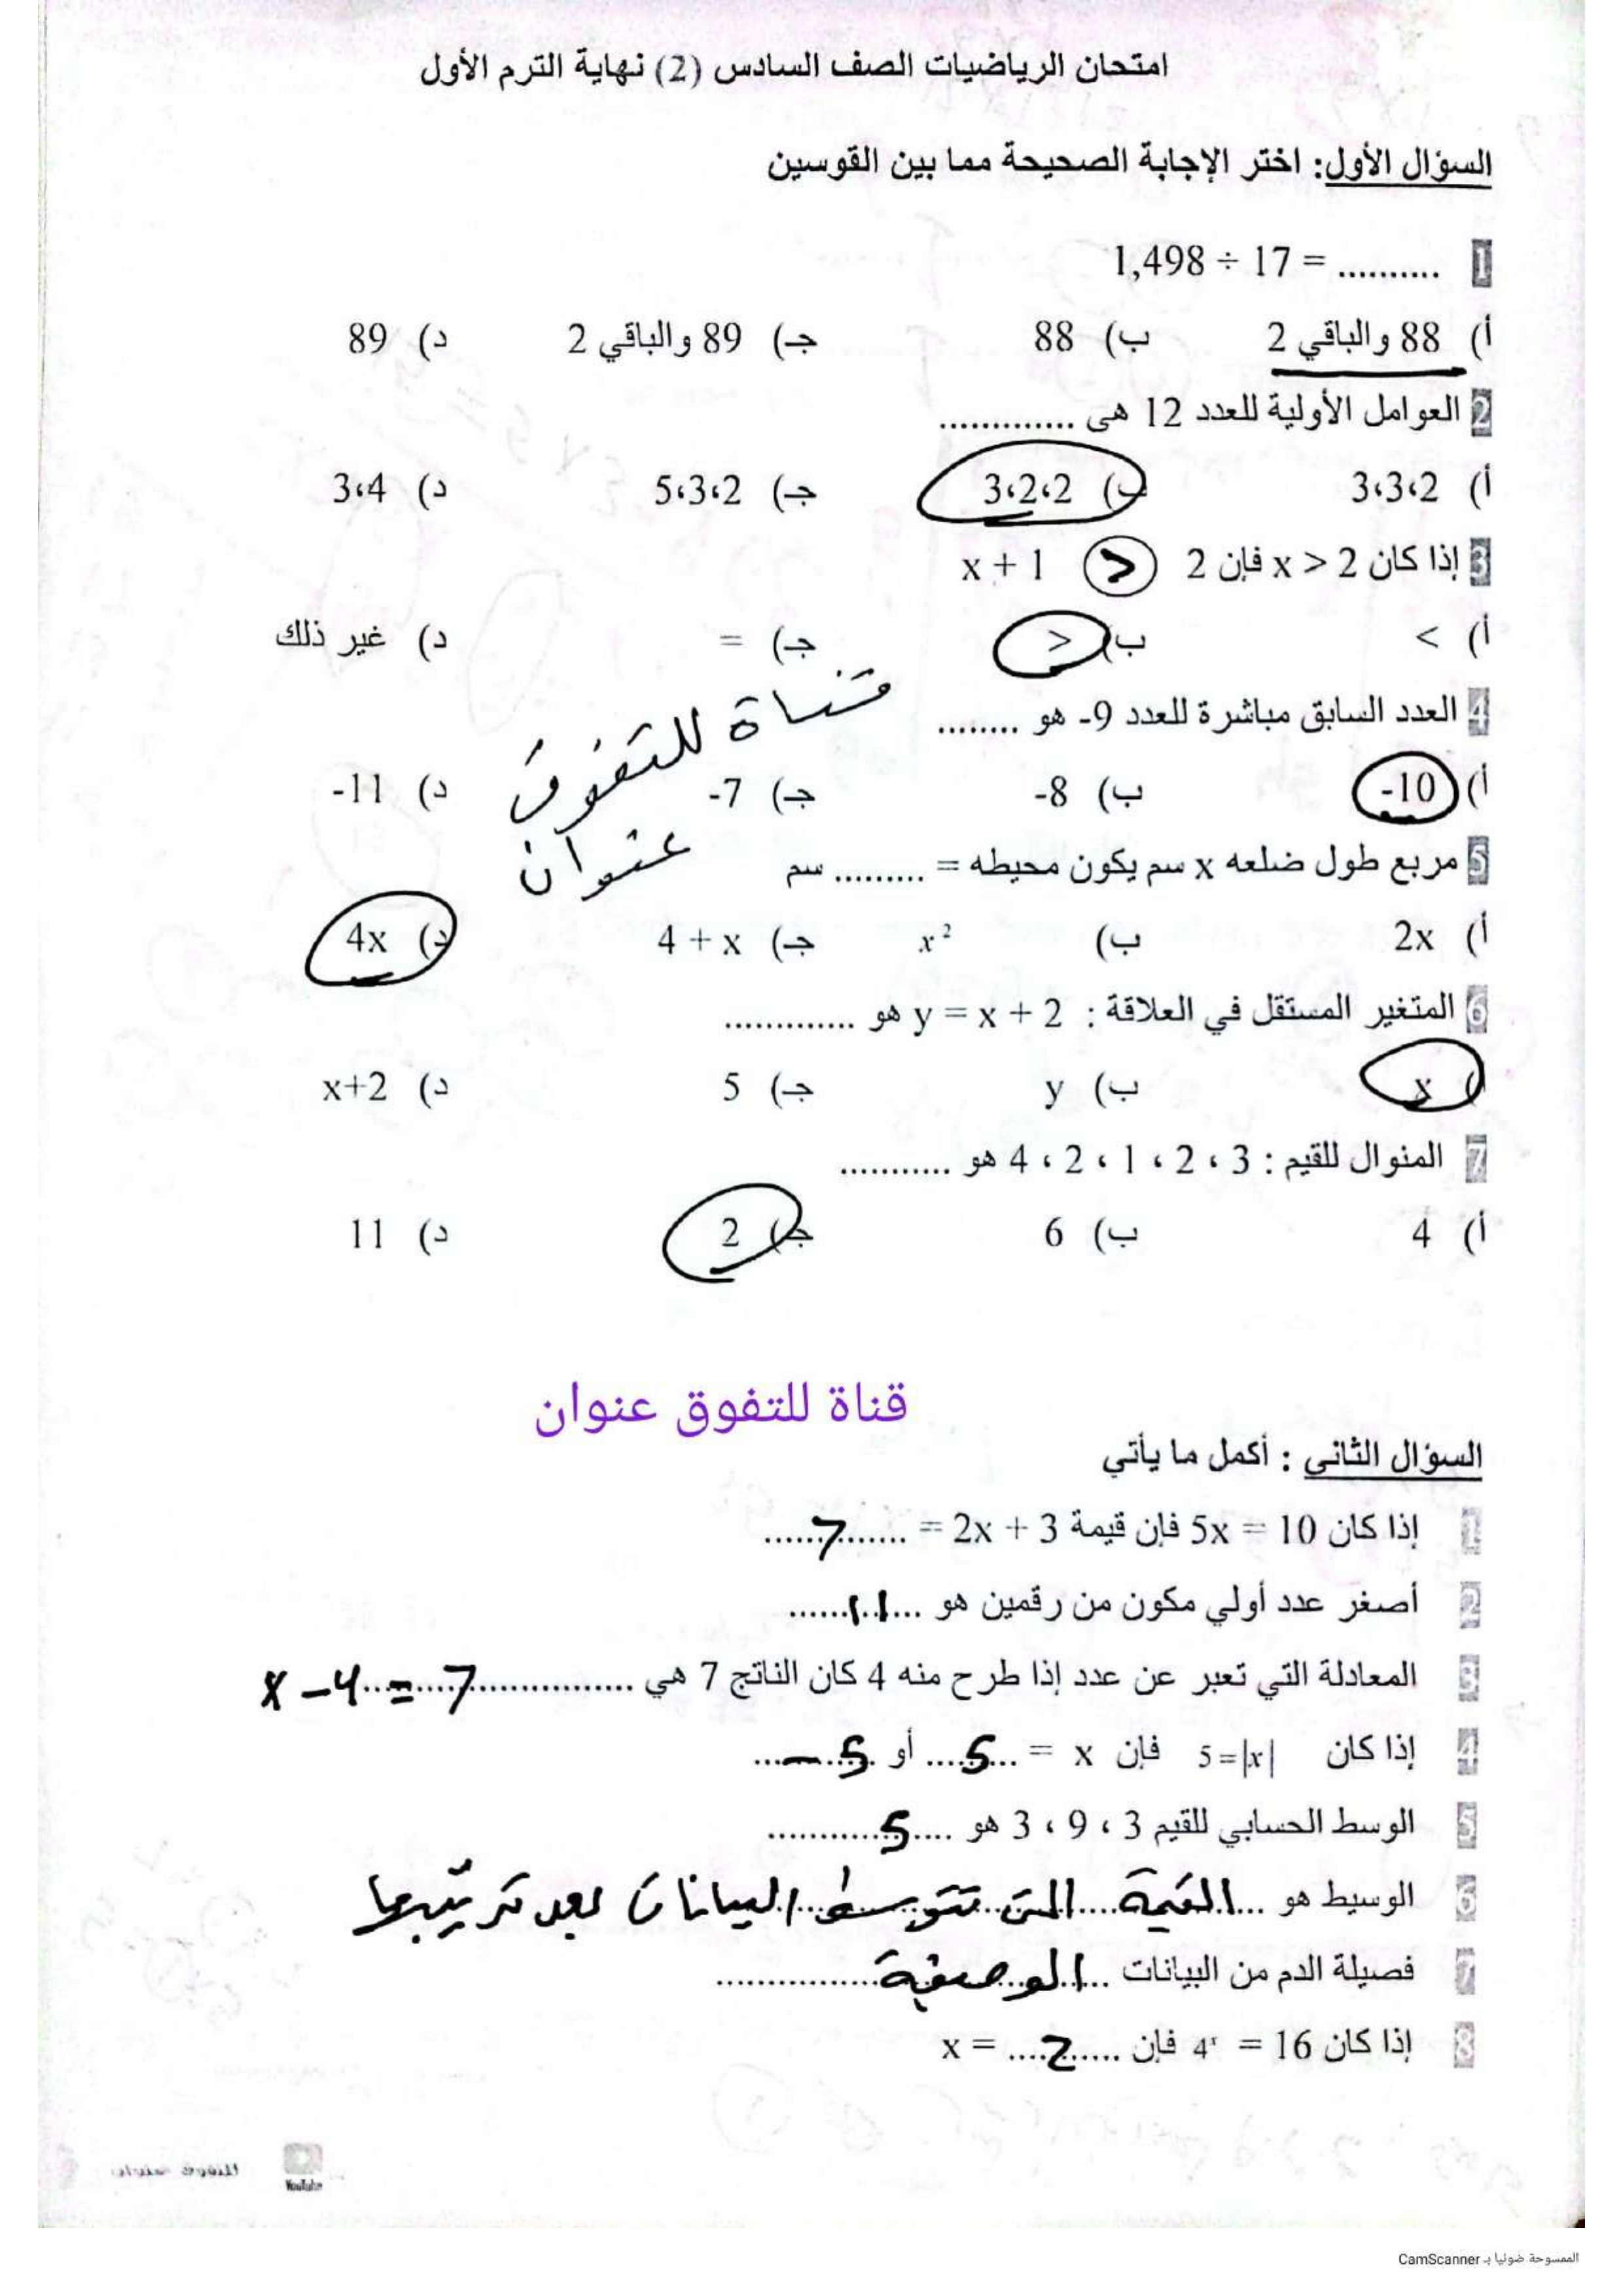 امتحان الرياضيات الصف السادس (2) نهاية الترم الأول
السؤال الأول: اختر الإجابة الصحيحة مما بين القوسين
1 1,498 ÷ 17 = ..........
أ) 88 والباقي 2 ب) 88 جـ) 89 والباقي 2 د) 89
2 العوامل الأولية للعدد 12 هى .............
أ) 3،3،2 ب) 3،2،2 جـ) 5،3،2 د) 3،4
3 إذا كان x > 2 فإن 2 > x + 1
أ) < ب) > جـ) = د) غير ذلك
4 العدد السابق مباشرة للعدد 9- هو ........
قناة للتفوق
أ) -10 ب) -8 جـ) -7 د) -11
عنوان
5 مربع طول ضلعه x سم يكون محيطه = ......... سم
أ) 2x ب) x² جـ) 4 + x د) 4x
6 المتغير المستقل في العلاقة : y = x + 2 هو .............
أ) x ب) y جـ) 5 د) x+2
7 المنوال للقيم : 3 ، 2 ، 1 ، 2 ، 4 هو ...........
أ) 4 ب) 6 جـ) 2 د) 11
قناة للتفوق عنوان
السؤال الثاني : أكمل ما يأتي
1 إذا كان 5x = 10 فإن قيمة 2x + 3 = .......7......
2 أصغر عدد أولي مكون من رقمين هو ...11......
3 المعادلة التي تعبر عن عدد إذا طرح منه 4 كان الناتج 7 هي ................ x - 4 = 7
4 إذا كان 5 = |x| فإن x = ...5.... أو ...-5...
5 الوسط الحسابي للقيم 3 ، 9 ، 3 هو ....5...........
6 الوسيط هو ...القيمة التى تتوسط البيانات بعد ترتيبها
7 فصيلة الدم من البيانات ...الوصفية...............
8 إذا كان 4ˣ = 16 فإن x = ....2......
للتفوق عنوان
YouTube
الممسوحة ضوئيا بـ CamScanner